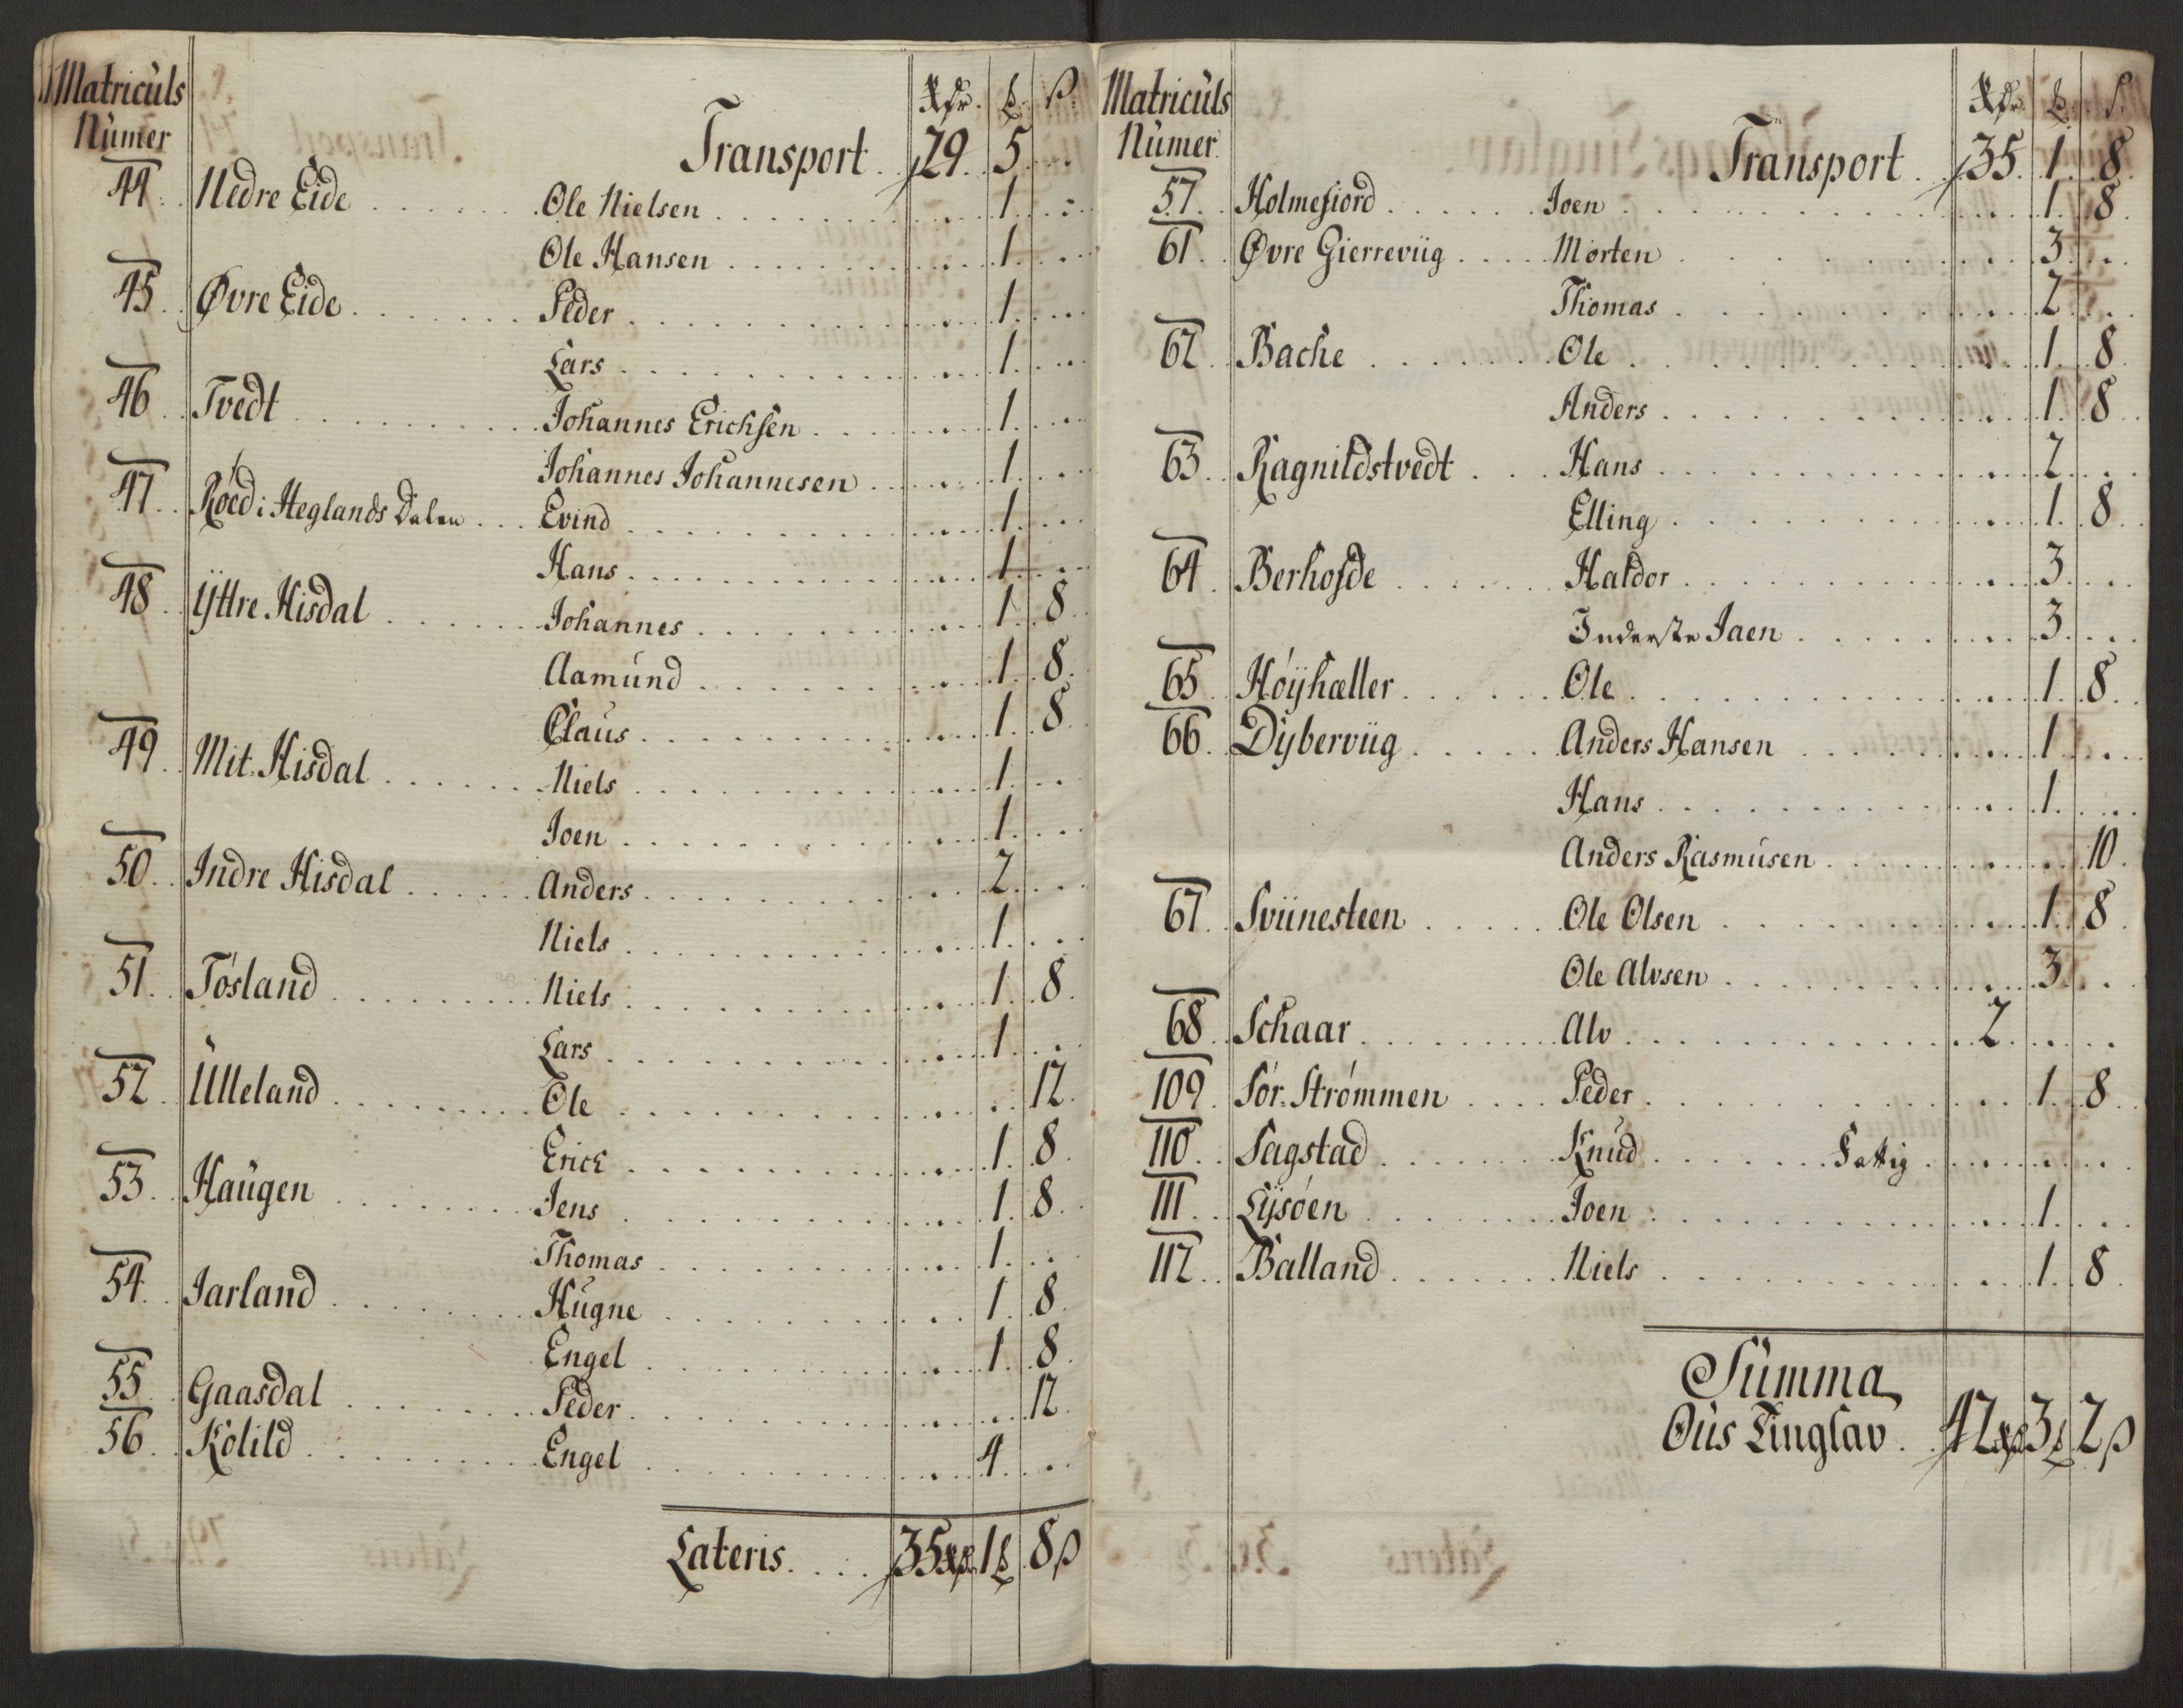 Matriculs
Numer
Rdr. ß. ß.
Transport . 29. 5. . . .
44. Nedre Eide . . . . . . Ole Nielsen . . . . . 1. . .
Ole Hansen . . . . . 1. . .
45. Øvre Eide . . . . . . Peder . . . . . 1. . .
Lars . . . . . 1. . .
46. Tvedt . . . . . . Johannes Erichsen . . . . . 1. . .
Johannes Johannesen . . . . . 1. . .
47. Röed i Heglands Dalen . . . Evind . . . . . 1. . .
Hans . . . . . 1. . .
48. Yttre Hisdal . . . . . . Johannes . . . . . 1. 8.
Aamund . . . . . 1. 8.
Claus . . . . . 1. 8.
49. Mit. Hisdal . . . . . . Niels . . . . . 1. . .
Joen . . . . . 1. . .
50. Indre Hisdal . . . . . . Anders . . . . . 2. . .
Niels . . . . . 1. . .
51. Tösland . . . . . . Niels . . . . . 1. 8.
Lars . . . . . 1. . .
52. Ulleland . . . . . . Ole . . . . . 12.
Erick . . . . . 1. 8.
53. Haugen . . . . . . Jens . . . . . 1. 8.
Thomas . . . . . 1. . .
54. Jarland . . . . . . Hugne . . . . . 1. 8.
Engel . . . . . 1. 8.
55. Gaasdal . . . . . . Peder . . . . . 12.
56. Kolild . . . . . . Engel . . . . . 4. . .
Lateris. . . . 35 1 8 ß
Matriculs
Numer.
Rdr. ß. ß.
Transport . . 35. 1. 8.
57. Holmefiord . . . . . . Joen . . . . . 1. 8.
61. Øvre Gierreviig . . . . Morten . . . . . 3. . .
Thomas . . . . . 2. . .
62. Bache . . . . . . Ole . . . . . 1. 8.
Anders . . . . . 1. 8.
63. Ragnildstvedt . . . Hans . . . . . 2. . .
Elling . . . . . 1. 8.
64. Berhofde . . . . . . Haldor . . . . . 3. . .
Inderste Jaen . . . . . 3. . .
65. Höyhæller . . . . . . Ole . . . . . 1. 8.
66. Dyberviig . . . . . Anders Hansen . . . . . 1. . .
Hans . . . . . 1. . .
Anders Rasmusen . . . . . 10.
67. Sviinesteen . . . . . Ole Olsen . . . . . 1. 8.
Ole Alvsen . . . . . 3. . .
68. Schaar . . . . . . Alv . . . . . 2. . . .
109. Sör. Strömmen . . . . Peder . . . . . 1. 8.
110. Sagstad . . . . . . Knud . . . . . Fattig . . . . .
111. Lysöen . . . . . . Joen . . . . . 1. . .
112. Balland . . . . . . Niels . . . . . 1. 8.
Summa
Ous Tinglav . 42 3 2 ß